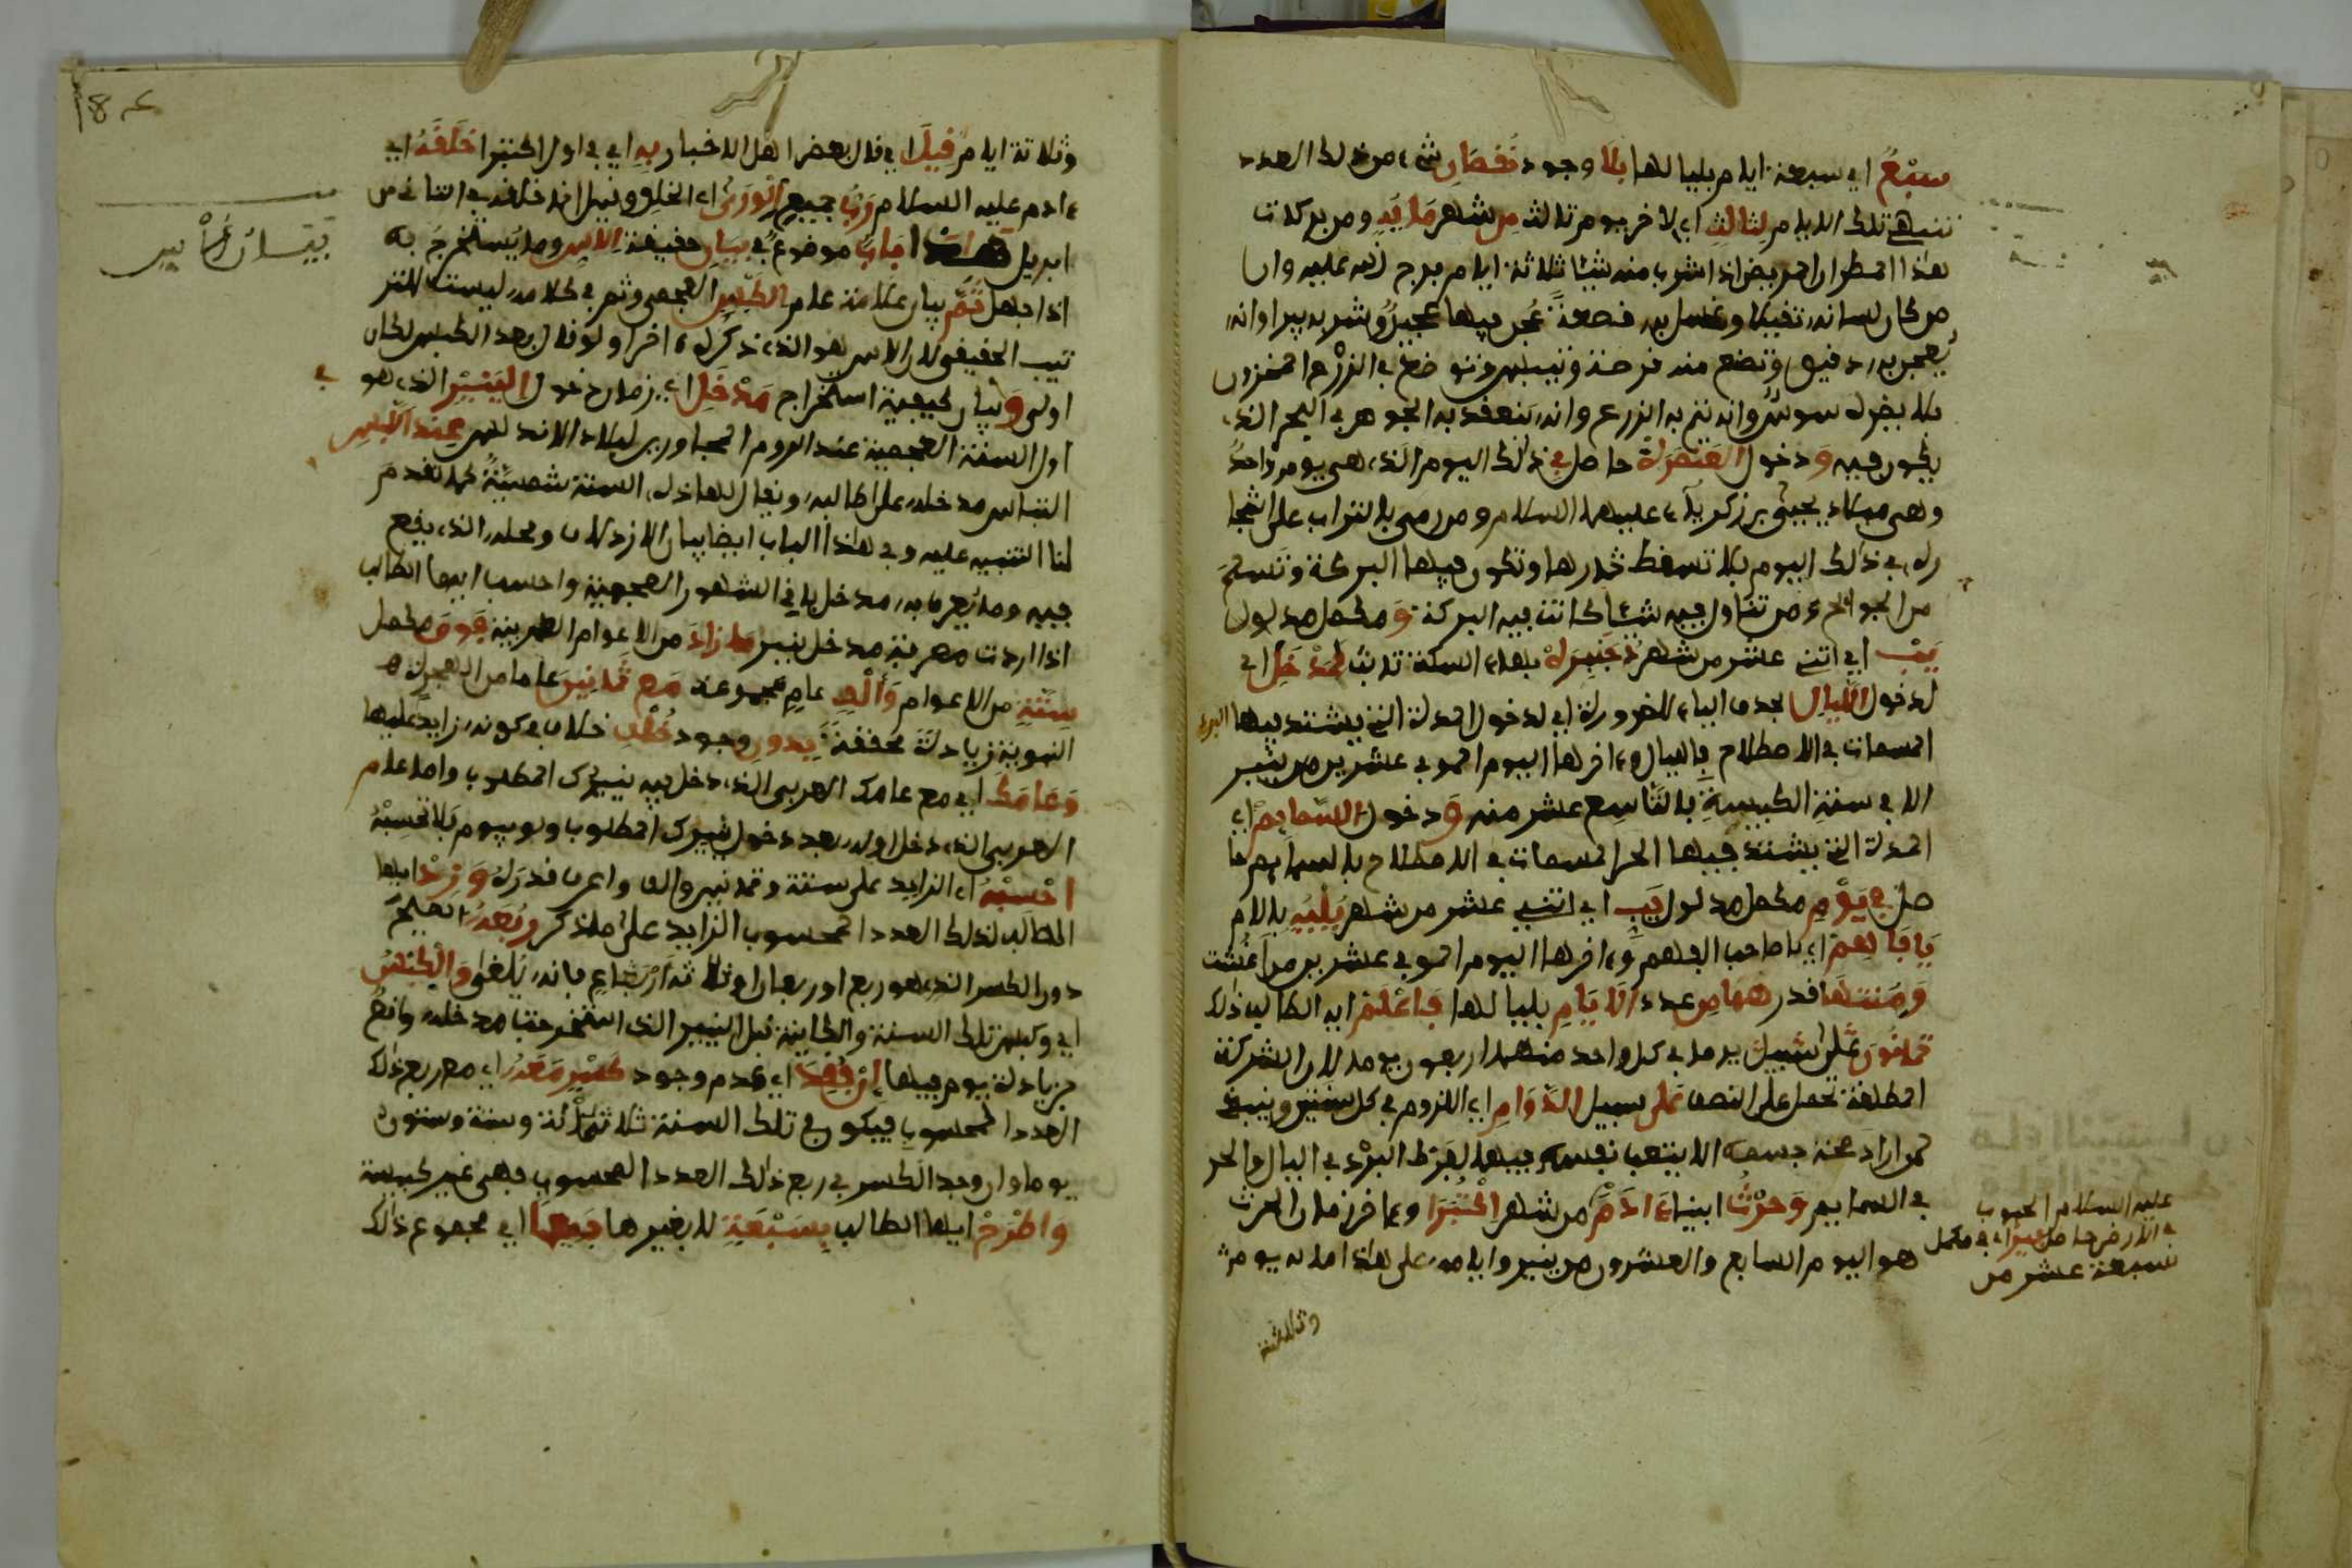 سبع اي سبعة ايام بلياليها بلا وجود نقصان شيء من ذلك العدد
تنتهي تلك الايام لثالث اي لاخر يوم ثالث من شهر مايه ومن بركات
هذا المطر ان المريض اذا شرب منه شيئا ثلاثة ايام برئ
من كان لسانه ثقيلا وغسل به عجن فيها عجين وشربه برا وانه
يعجن به دقيق وتصنع منه قرصة وتيبس وتوضع في الزرع المخزون
فلا يقربه سوس وانه ينم به الزرع وانه ينعقد به الجوهر في البحر الذي
يكون فيه ودخول العنصرة حاصل في ذلك اليوم الذي هي يوم واحد
وهي ميلاد يحيى بن زكرياء عليهما السلام ومن رمى بالتراب على اشجا
ره في ذلك اليوم فلا تسقط ثمارها وتكون فيها البركة وتسلم
من الجوائح ومن تناول فيه شيئا كانت فيه البركة ومكمل مدلول
يب اي اثني عشر من شهر دجنبره بهاء السكت ثابت لمدخل اي
لدخول الليال بحذف الياء للضرورة اي لدخول المدة التي يشتد فيها البرد
المسمات في الاصطلاح بالليال وءاخرها اليوم الموفي عشرين من ينير
الا في سنة الكبيسة بالتاسع عشر منه ودخول السمايم اي
المدة التي يشتد فيها الحر المسمات في الاصطلاح بالسمايم حا
صل في يوم مكمل مدلول يب اي اثني عشر من شهر يليه بالام
يا فاهم اي يا صاحب الفهم وءاخرها اليوم الموفي عشرين من اغشت
ومنتها قدرهما من عدد الايام بلياليها فاعلم ايه الطالب ذلك
ثمانون على سبيل يوما في كل واحد منهما اربعون يوما لان الشركة
المطلقة تحمل على النصف على سبيل الدوام اي اللزوم في كل سنين وينبغي
لمن اراد صحة جسمه الا يتعب نفسه فيهما لفرط البرد في الليال والحر
في السمايم وحرث ابينا ءادم من شهر اكتبر وءاخر زمان الحرث
هو اليوم السابع والعشرون من ينير وايامه على هذا مائة يوم
عليه السلام الحبوب
في الارض حاصل في مكمل
سبعة عشر من
وثلاثة
184
وثلاثة ايام قيل اي قال بعض اهل الاخبار به اي في اول اكتبر خلقه اي
ءادم عليه السلام رب جميع الورى اي الخلق وقيل انه خلقه في الثاني من
ابريل هذا باب موضوع في بيان حقيقة الاس وما يستخرج به
بيان الاس
اذا جهل ثم بيان علامة عام الكبس العجمي وثم في كلامه ليست للتر
تيب الحقيقي لان الاس هو الذي ذكره ءاخرا ولو قال بعد الكبس لكان
اولى وبيان كيفية استخراج مدخل اي زمان دخول الينير الذي هو
اول السنة العجمية عند الروم المجاورين لبلاد الاندلس عند الاس في
التباس مدخله على طالبه ويقال لهاذه السنة شمسية كما تقدم
لنا التنبيه عليه وفي هذا الباب ايضا بيان الازدلاف ومحله الذي يقع
فيه وما يعرف به مدخل باقي الشهور العجمية واحسب ايها الطالب
اذا اردت معرفة مدخل ينير ما زاد من الاعوام العربية فوق مكمل
ستة من الاعوام والف عام مجموعة مع ثمانين عاما من الهجرة
النبوية زيادة محققة بدون وجود خلف خلاف في كونه زايد عليها
وعامك اي مع عامك العربي الذي دخل فيه ينيرك المطلوب واما عام
العربي الذي دخل اوله بعد دخول ينيرك المطلوب ولو بيوم فلا تحسبه
احسبه اي الزايد على ستة وثمانين والف واعرف قدره وزد ايها
الطالب لذلك العدد المحسوب الزايد على ما ذكر وربعه الصحيح
دون الكسر الذي هو ربع او ربعان او ثلاثة ارباع فانه يلغى والكبس
اي وكبس تلك السنة والكاينة قبل الينير الذي استخرجت مدخله واقع
بزيادة يوم فيها ان فقد اي عدم وجود كسر معه اي مع ربع ذلك
العدد المحسوب فيكون في تلك السنة ثلاثمائة وستة وستون
يوما وان وجد الكسر في ربع ذلك العدد المحسوب فهي غير كبيسة
واطرح ايها الطالب بسبعة لا بغيرها جميعها اي مجموع ذلك